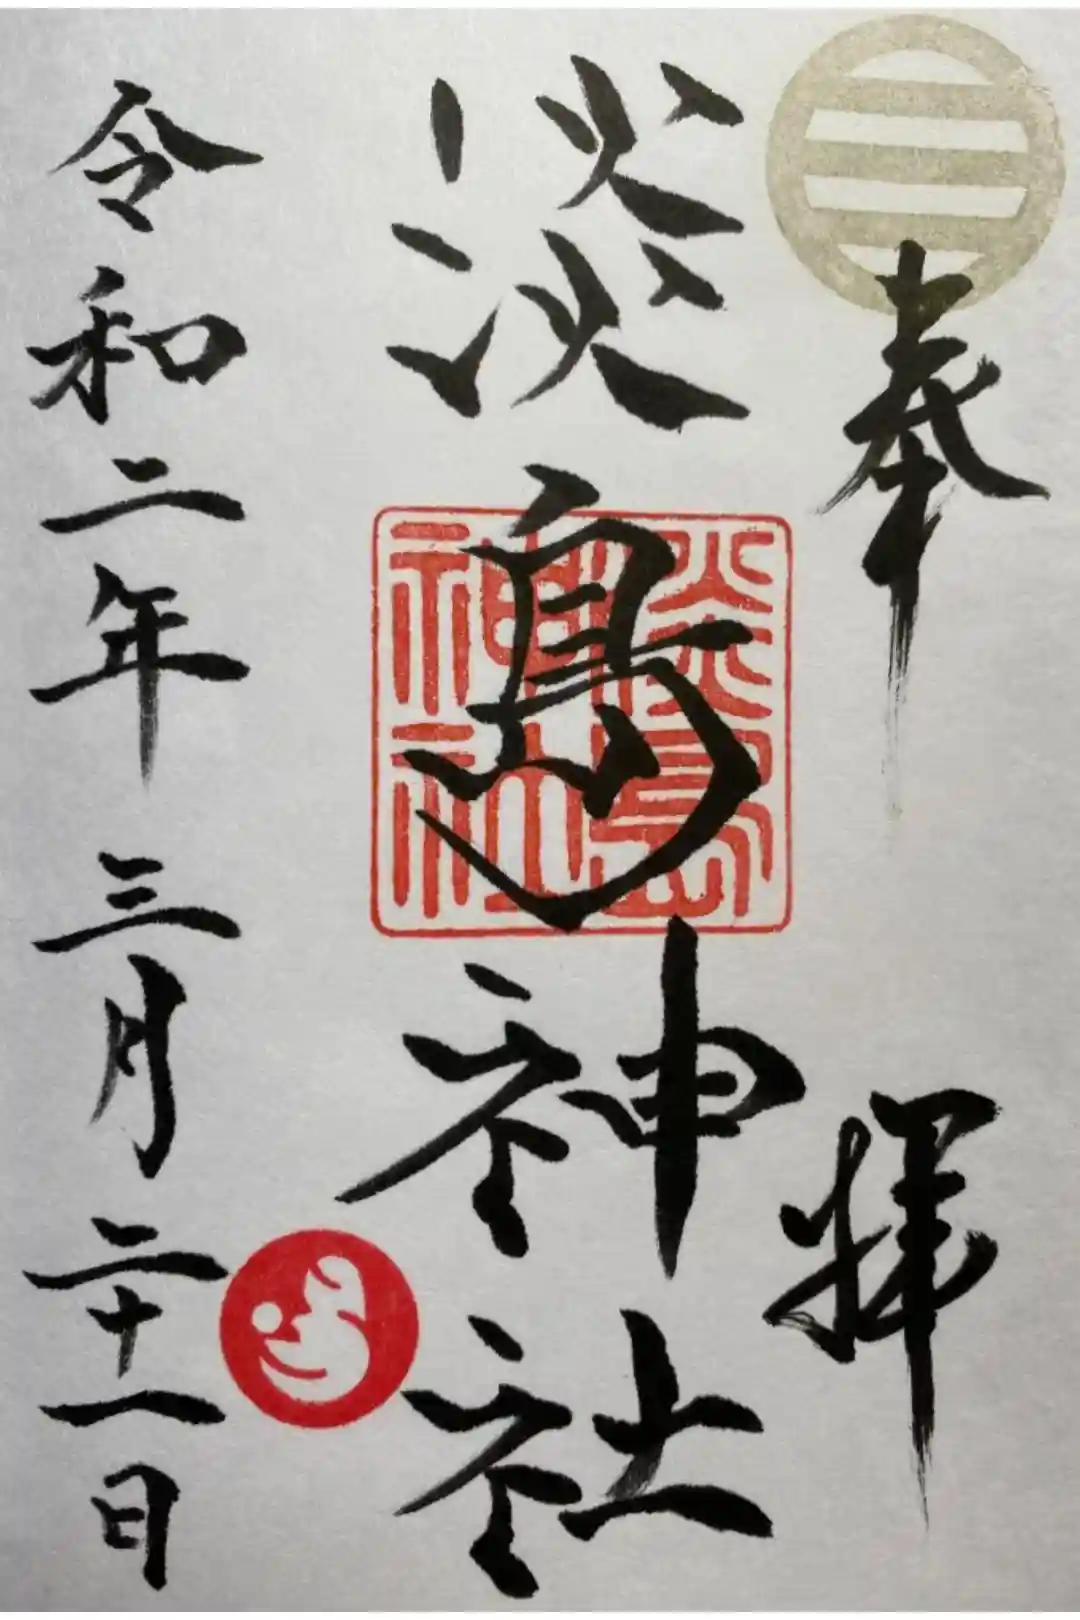 奉拝
淡嶋神社
淡島神社
令和二年三月二十一日